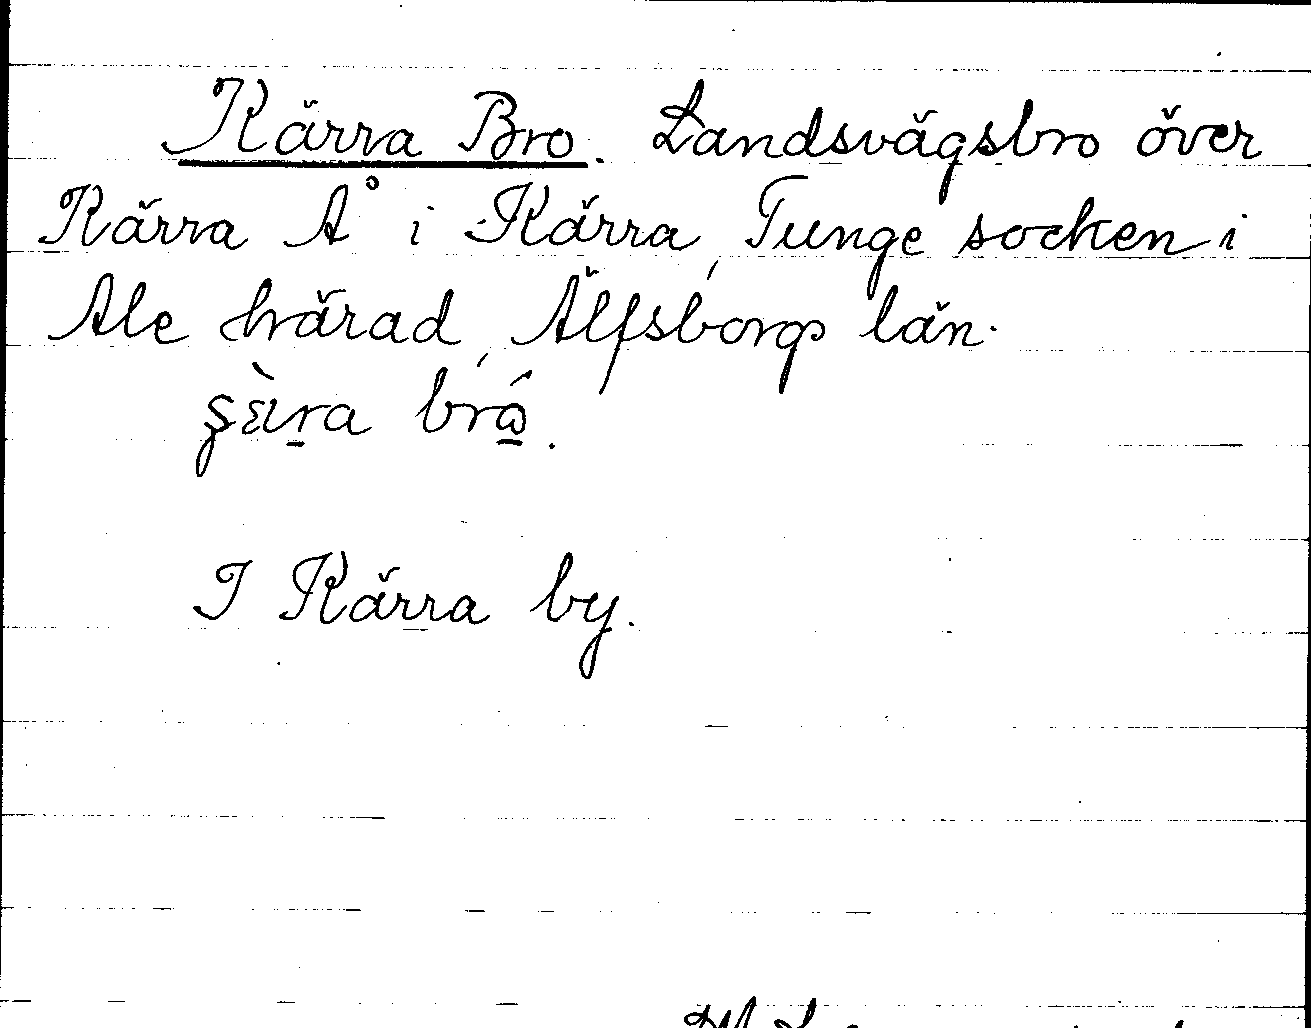 Kärra Bro. Landsvägsbro över
Kärra Å i Kärra, Tunge socken i
Ale härad, Älfsborgs län.
brå.
I Kärra by.